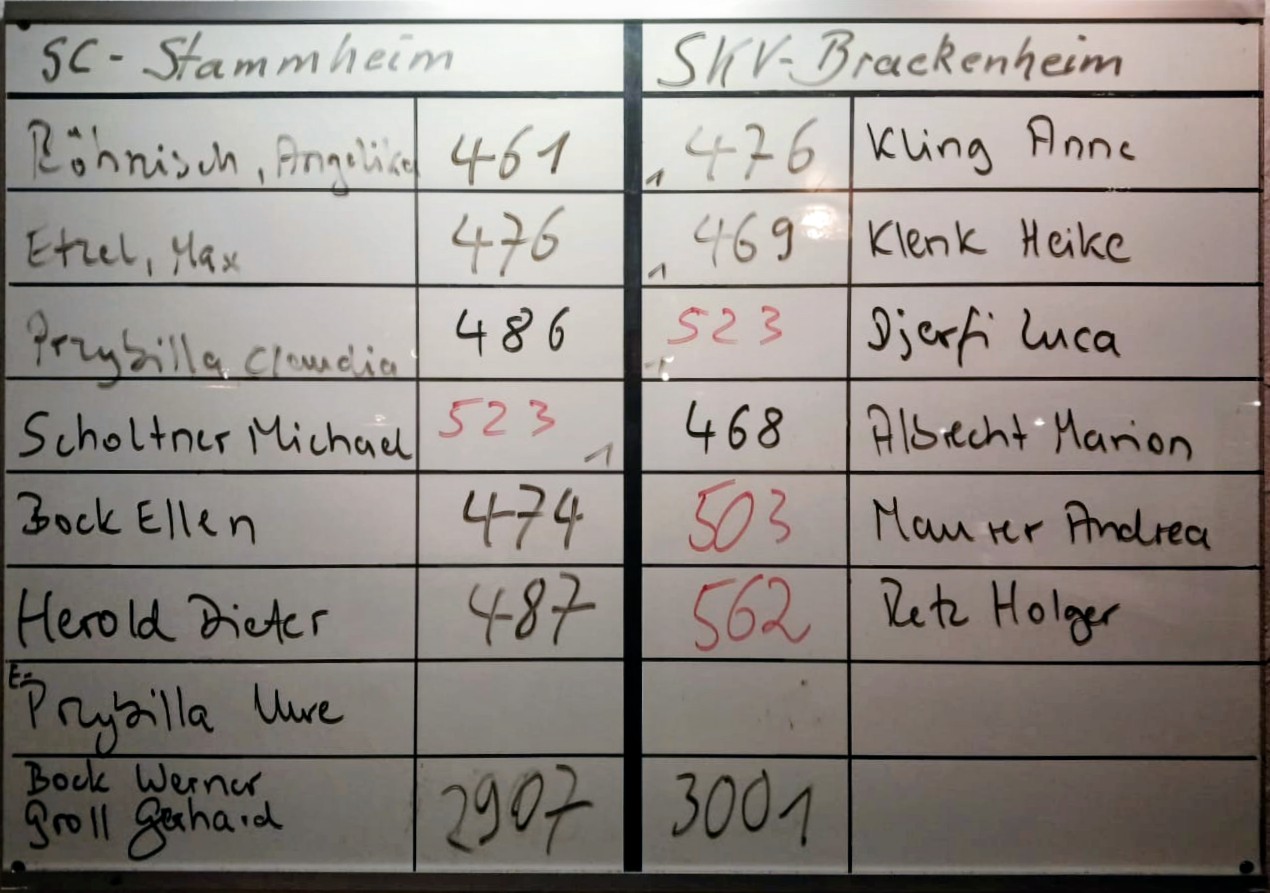 SC - Stammheim SKV-Brackenheim
Röhnisch, Angelika 461 1 476 Kling Anne
Etzel, Max 476 1 469 Klenk Heike
Przybilla Claudia 486 523 Djerfi Luca
Scholtner Michael 523 1 468 Albrecht Marion
Bock Ellen 474 503 Maurer Andrea
Herold Dieter 487 562 Retz Holger
E:
Przybilla Uwe
Bock Werner
Groll Gerhard 2907 3001